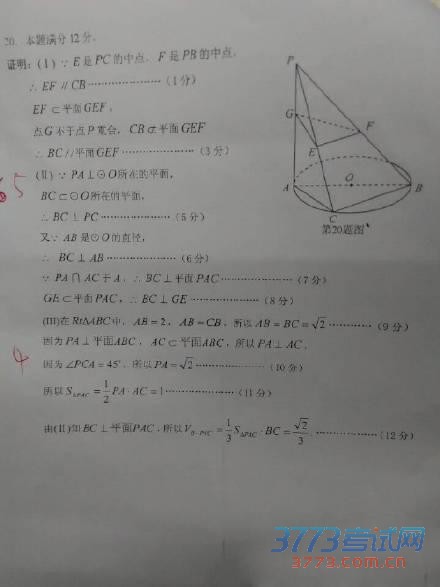 20. 本题满分12分.
证明: (Ⅰ) ∵ E是PC的中点, F是PB的中点,
∴ EF // CB ………………… (1分)
EF ⊂ 平面GEF,
点G不于点P重合, CB ⊄ 平面GEF
∴ BC // 平面GEF ………………… (3分)
(Ⅱ) ∵ PA⊥⊙O所在的平面,
BC⊂⊙O所在的平面,
∴ BC ⊥ PC ………………… (5分)
又∵ AB是⊙O的直径,
∴ BC ⊥ AB ………………… (6分)
∵ PA ∩ AC于A, ∴ BC⊥平面PAC ………………… (7分)
GE⊂平面PAC, ∴ BC⊥GE ………………… (8分)
(Ⅲ)在Rt△ABC中, AB=2, AB=CB, 所以AB=BC=√2 ………… (9分)
因为PA⊥平面ABC, AC⊂平面ABC, 所以PA⊥AC,
因为∠PCA=45°, 所以PA=√2 ………………… (10分)
所以S△PAC = 1/2 PA·AC = 1 ………………… (11分)
由(Ⅱ)知BC⊥平面PAC, 所以V_B-PAC = 1/3 S△PAC · BC = √2/3. ………………… (12分)
P
G
F
E
A
O
B
C
第20题图
5
4
3773考试网
www.3773.com.cn